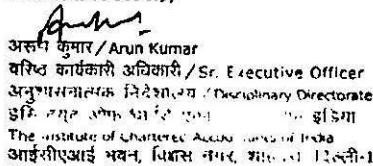 अरूण कुमार / Arun Kumar
वरिष्ठ कार्यकारी अधिकारी / Sr. Executive Officer
अनुशासनात्मक निदेशालय / Disciplinary Directorate
इंडिया
The Institute of Chartered Accountants of India
आईसीएआई भवन, विश्वास नगर,